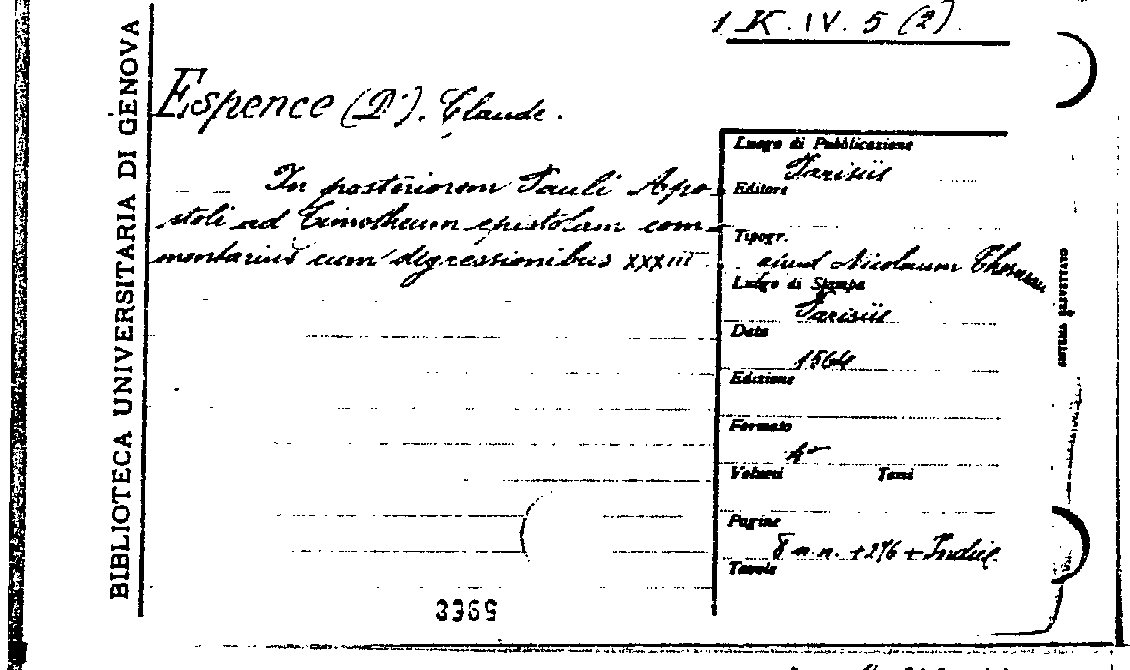 1 K. IV. 5 (2).
BIBLIOTECA UNIVERSITARIA DI GENOVA
Espence (D'). Claude.
In posteriorem Pauli Apo-
stoli ad Timotheum epistolam com-
mentarius cum digressionibus XXXIII
Luogo di Pubblicazione
Parisiis
Editore
Tipogr.
apud Nicolaum
Luogo di Stampa
Parisiis
Data
1564
Edizione
Formato
4°
Volumi Tomi
Pagine
8 n.n. + 276 + Indice
Tavole
SISTEMA BREVETTATO